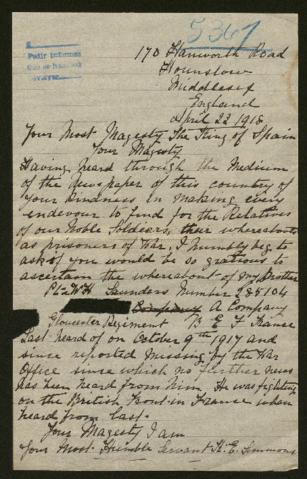 5367
Pedir informes
170 Hanworth Road
Hounslow
Middlesex
England
April 22 1918
Your Most Magesty The King of Spain
Your Magesty
Having heard through the Medium
of the Newspaper of this country of
your kindness in making every
endevour to find for the Relatives
of our Noble Soldiers, their whereabouts
as prisoners of War, I humbly beg to
ask if you would be so gratious to
ascertain the whereabout of my Brother
Pte W H Saunders Number 285104
Company A Company
Gloucester Regiment B E F France
Last heard of on October 9th 1917 and
since reported missing by the War
Office since which no further news
has been heard from him. He was fighting
on the British Front in France when
heard from last.
Your Magesty I am
Your Most Humble Servant H. E. Simmons